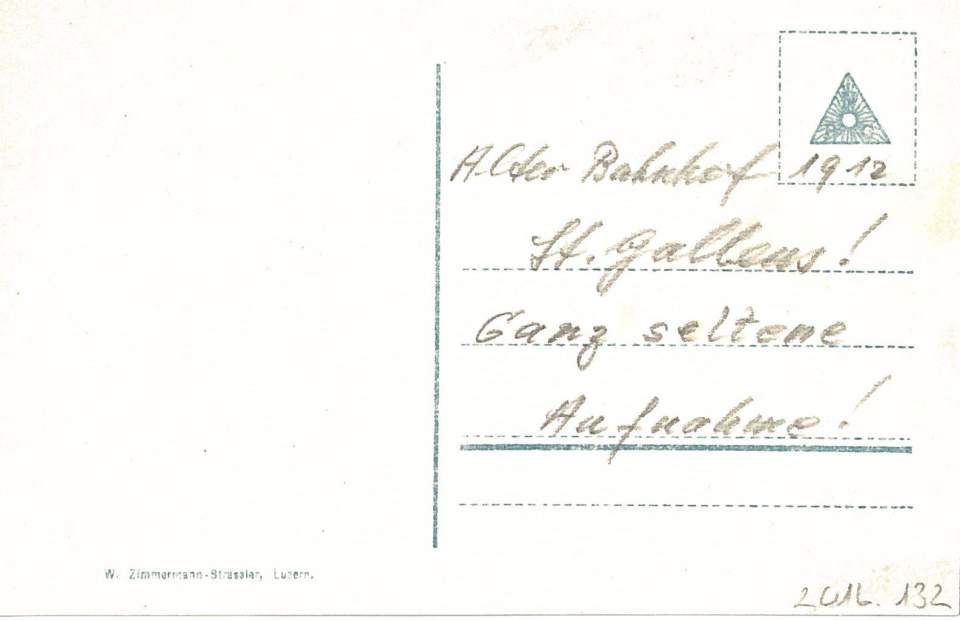 Alter Bahnhof 1912
St. Gallens!
Ganz seltene
Aufnahme!
W. Zimmermann-Strässler, Luzern.
2016. 132